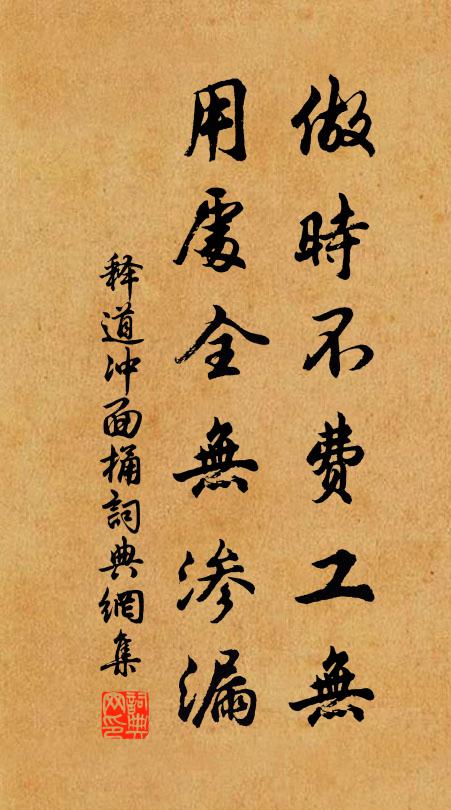 做時不費工無
用處全無渗漏
释道冲面桶詞典網集
詞典網印